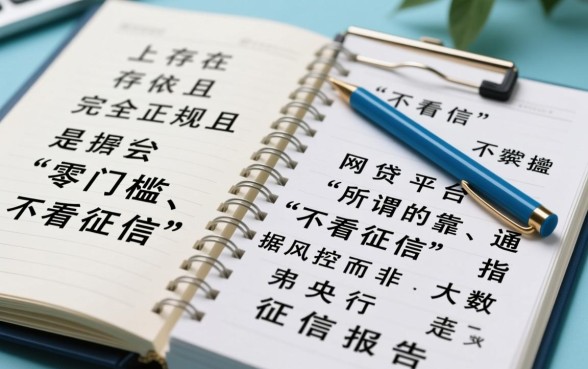 上存在
存依且
完全正规且
是会
“零门槛、
不看征信”
“不看信”
不
网贷平台
“所谓的靠、通
“不看征信” 指
据风控而非·大数
央行 走
征信报告